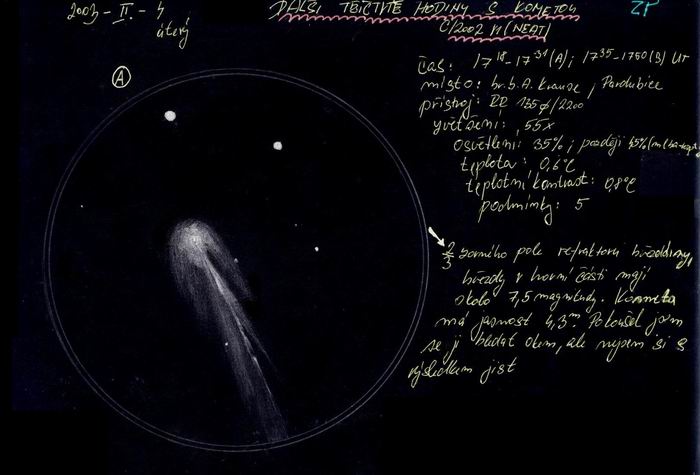 2003 - II. - 4
úterý
DALŠÍ TŘIČTVRTĚ HODINY S KOMETOU
C/2002 V1 (NEAT)
ZP
A
čas: 17¹⁸-17³¹(A); 17³⁵-1750(B) UT
místo: hv.b.A. Krause, Pardubice
přístroj: RE 135ø/2200
zvětšení: 55x
osvětlení: 35%; později
teplota: 0,6°C
teplotní kontrast: 0,8°C
podmínky: 5
2/3 zorného pole refraktoru hvězdárny,
hvězdy v horní části mají
okolo 7,5 magnitudy. Kometa
má jasnost 4,3ᵐ. Pokoušel jsem
se ji hledat okem, ale nejsem si s
výsledkem jist